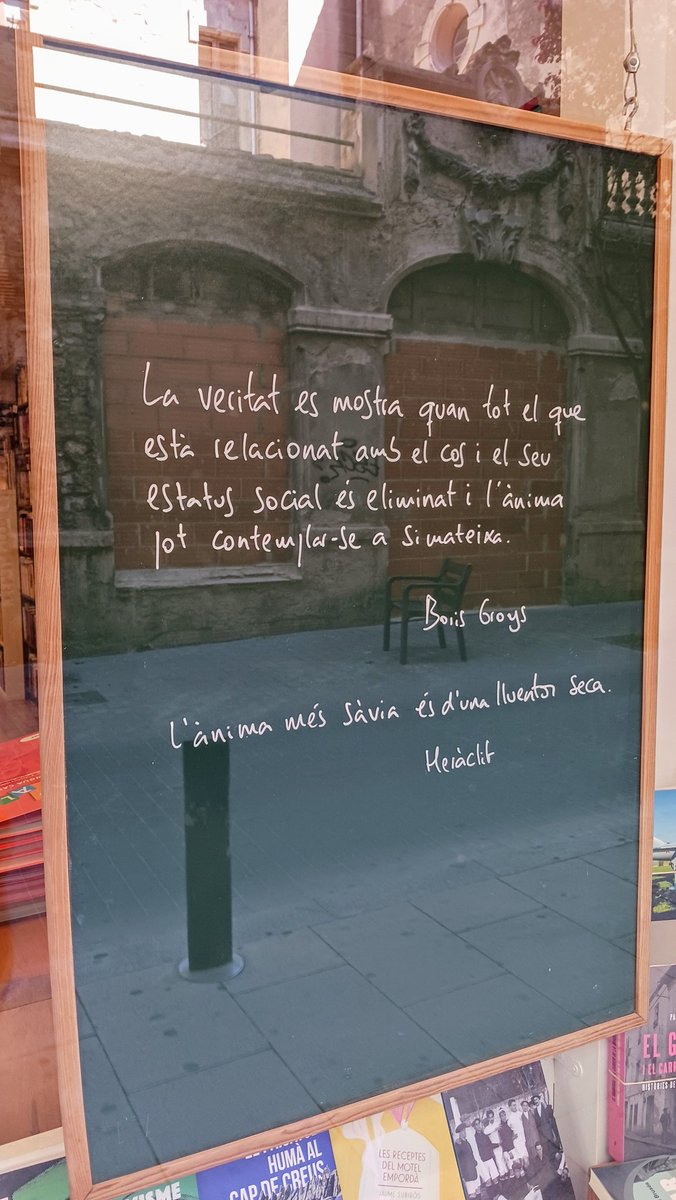 La veritat es mostra quan tot el que
està relacionat amb el cos i el seu
estatus social és eliminat i l'ànima
pot contemplar-se a si mateixa.
Boris Groys
L'ànima més sàvia és d'una lluentor seca.
Heràclit
HUMÀ AL
CAP DE CREUS
LES RECEPTES
DEL MOTEL
EMPORDÀ
JAUME SUBIRÓS
EL G
I EL CARR
HISTÒRIES DE